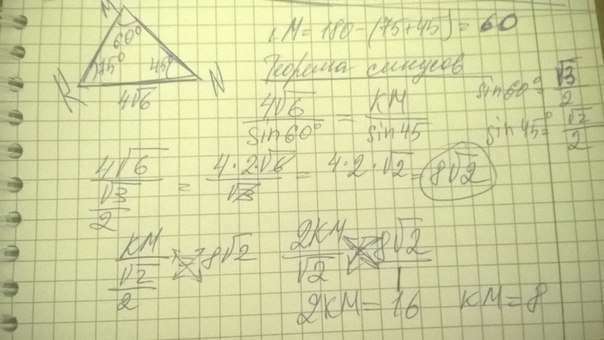 M
60°
75°
45°
K
N
4√6
∠M = 180 - (75+45) = 60
Теорема синусов
4√6/sin60° = KM/sin45
sin60° = √3/2
sin45° = √2/2
4√6/(√3/2) = 4·2√6/√3 = 4·2·√2 = 8√2
KM/(√2/2) = 8√2
2KM/√2 = 8√2/1
2KM = 16 KM = 8